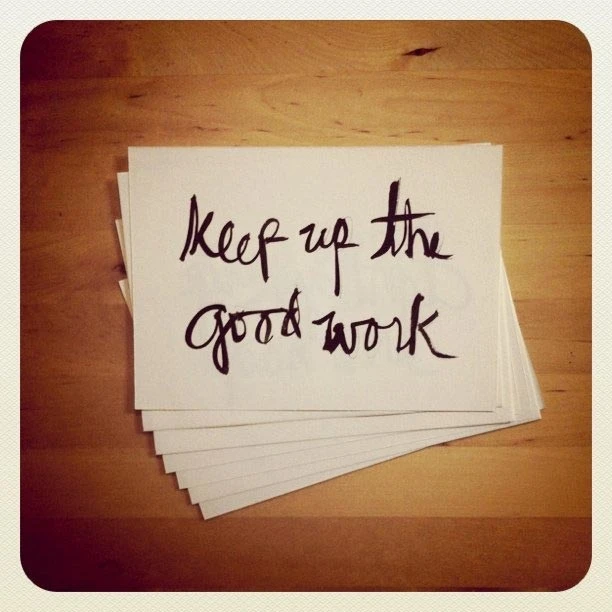 keep up the
good work